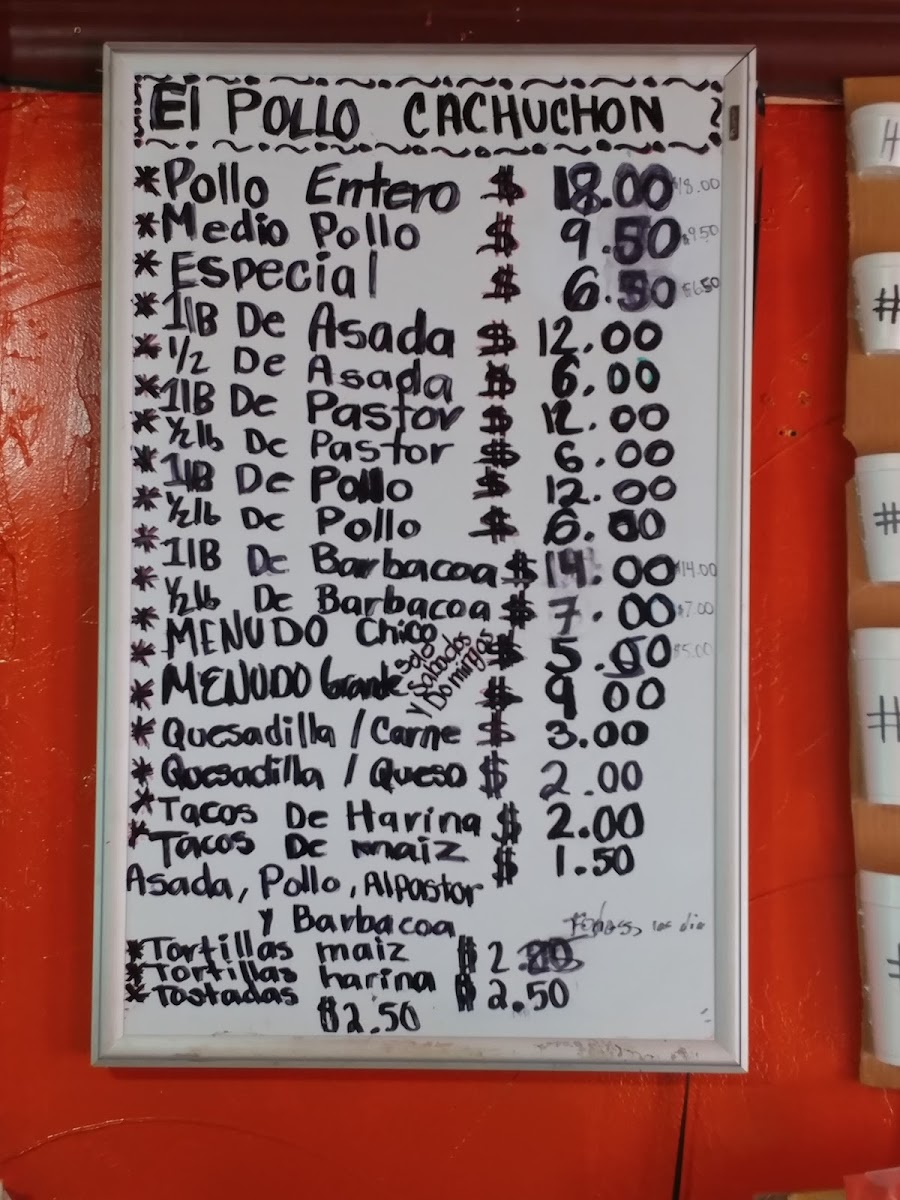 El POLLO CACHUCHON
*Pollo Entero $ 18.00 $18.00
*Medio Pollo $ 9.50 $9.50
*Especial $ 6.50 $6.50
*1lB De Asada $ 12.00
*1/2 De Asada $ 6.00
*1lB De Pastor $ 12.00
*1/2lb De Pastor $ 6.00
*1lB De Pollo $ 12.00
*1/2lb De Pollo $ 6.00
*1lB De Barbacoa $ 14.00 $14.00
*1/2lb De Barbacoa $ 7.00 $7.00
*MENUDO Chico $ 5.00 $5.00
Solo Sabados
Y Domingos
*MENUDO Grande $ 9 00
*Quesadilla / Carne $ 3.00
*Quesadilla / Queso $ 2.00
*Tacos De Harina $ 2.00
*Tacos De maiz $ 1.50
Asada, Pollo, AlPastor
y Barbacoa
*Tortillas maiz $ 2.
*Tortillas harina $ 2.50
*Tostadas
$2.50
#
#
#